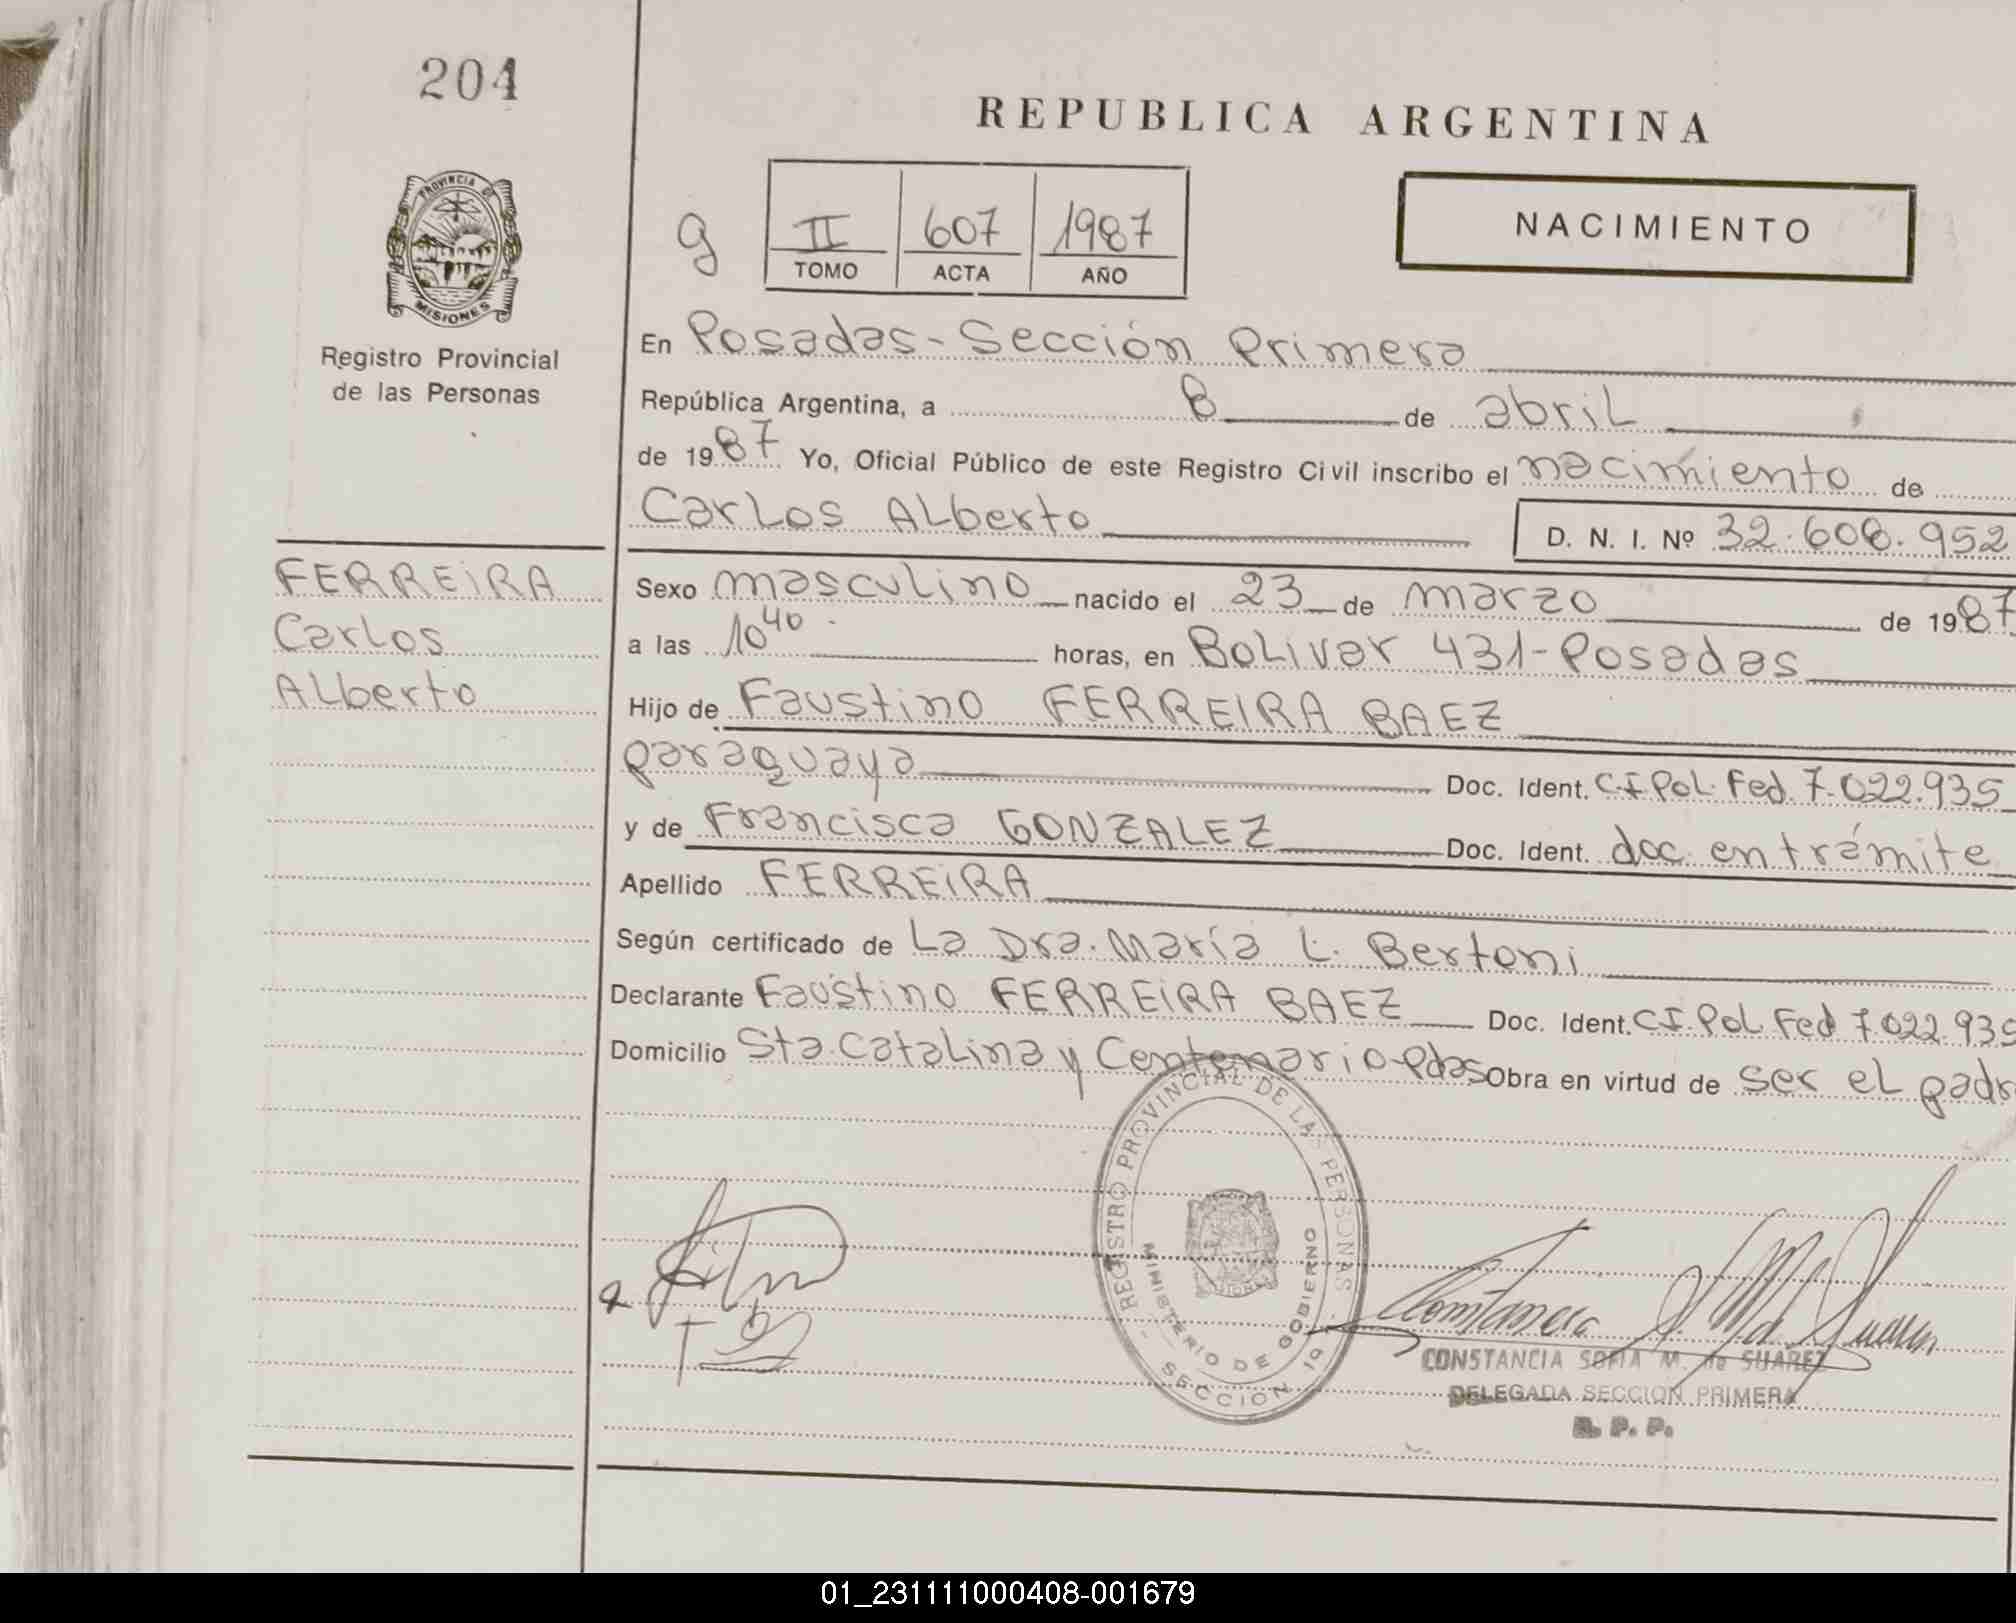 204
REPUBLICA ARGENTINA
PROVINCIA DE
MISIONES
Registro Provincial
de las Personas
g
II 607 1987
TOMO ACTA AÑO
NACIMIENTO
En Posadas - Sección Primera
República Argentina, a 8 de abril
de 1987 Yo, Oficial Público de este Registro Civil inscribo el nacimiento de
Carlos Alberto D. N. I. Nº 32.608.952
FERREIRA
Carlos
Alberto
Sexo masculino nacido el 23 de marzo de 1987
a las 10 40 horas, en Bolivar 431 - Posadas
Hijo de Faustino FERREIRA BAEZ
paraguaya Doc. Ident. C.I Pol. Fed. 7.022.935
y de Francisca GONZALEZ Doc. Ident. doc. en trámite
Apellido FERREIRA
Según certificado de La Dra. María L. Bertoni
Declarante Faustino FERREIRA BAEZ Doc. Ident. C.I. Pol Fed 7.022.935
Domicilio Sta. Catalina y Centenario - Pdas Obra en virtud de ser el padr
REGISTRO PROVINCIAL DE LAS PERSONAS
MINISTERIO DE GOBIERNO
SECCION 1ª
CONSTANCIA SOFIA M. de SUAREZ
DELEGADA SECCION PRIMERA
R. P. P.
01_231111000408-001679